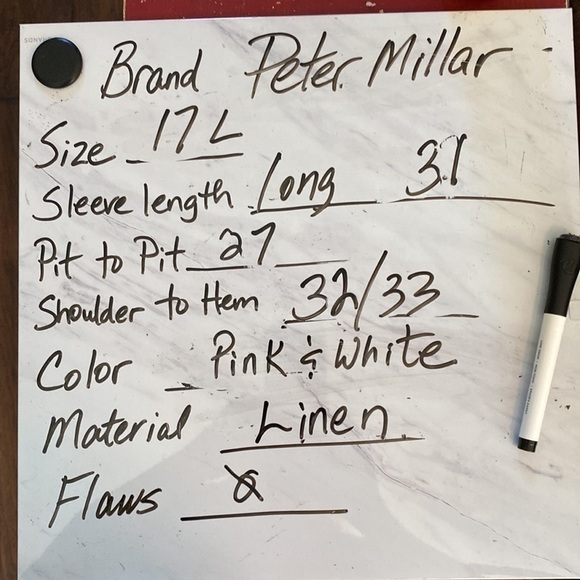 Brand Peter Millar
Size 17 L
Sleeve length Long 31
Pit to Pit 27
Shoulder to Hem 32/33
Color Pink & White
Material Linen
Flaws